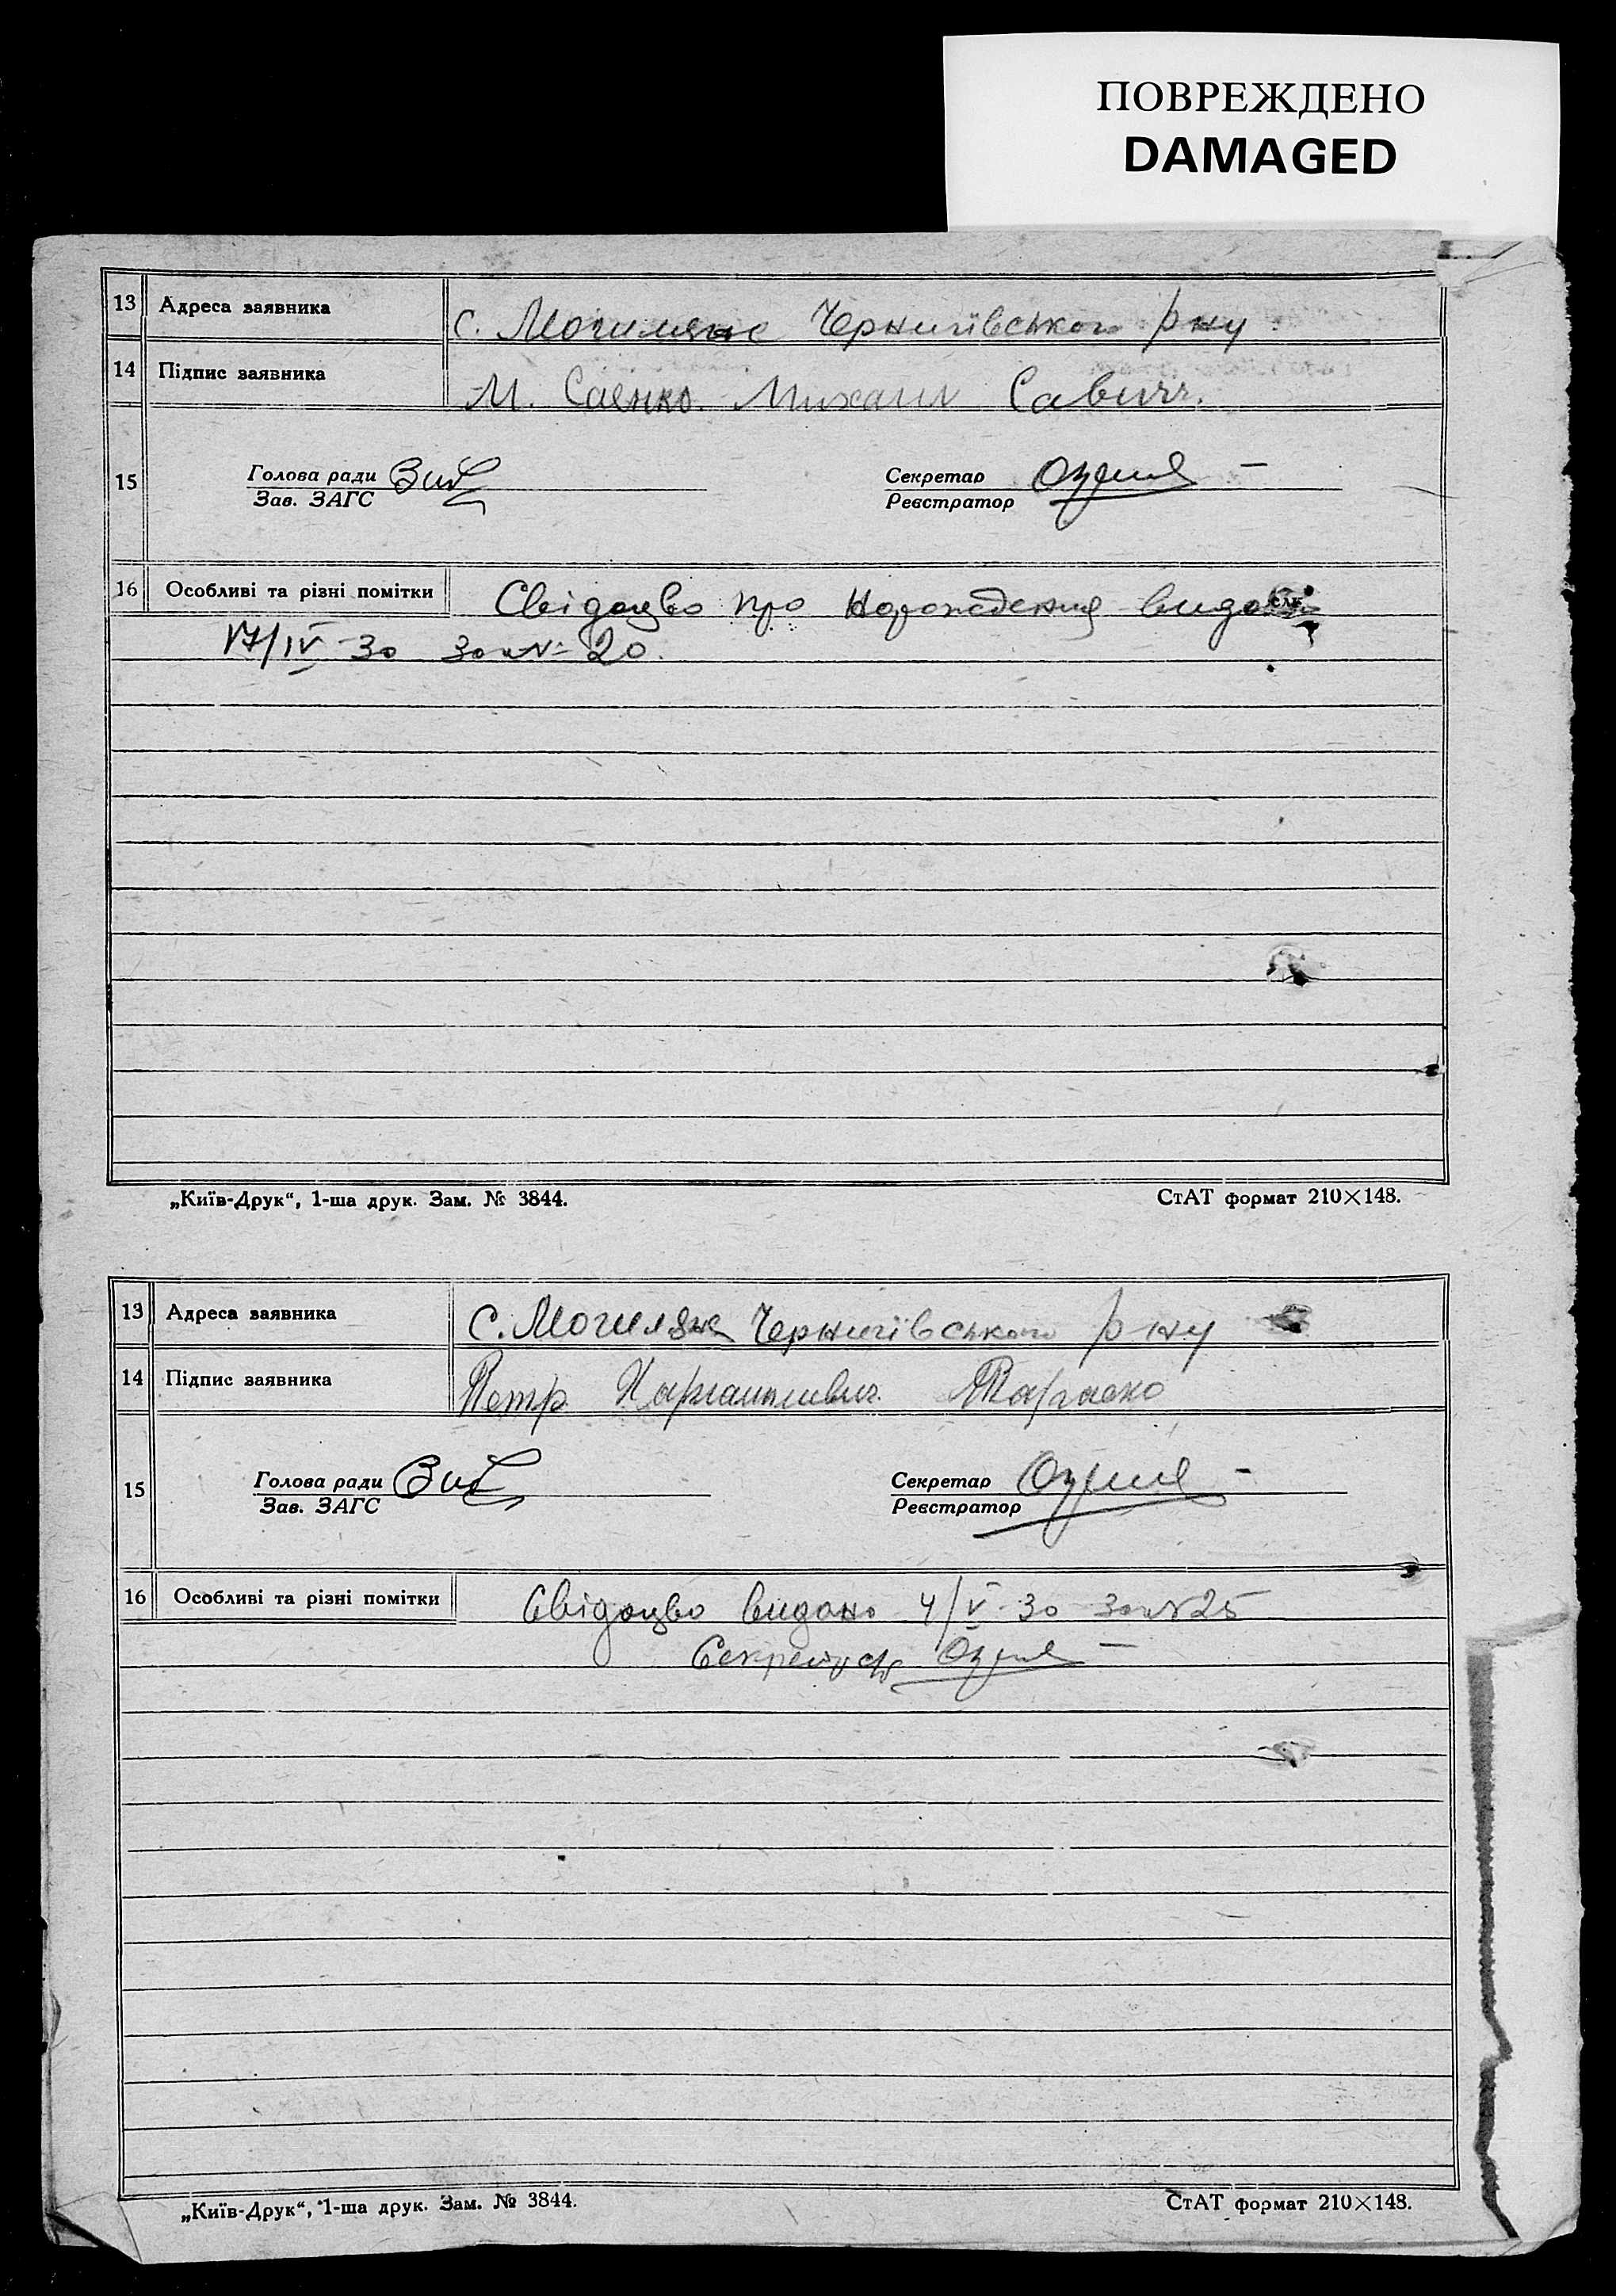 ПОВРЕЖДЕНО
DAMAGED
13 Адреса заявника с. Могиляне Чернигівського р ну
14 Підпис заявника М. Саенко. Михаил Савич.
15 Голова ради Секретар
Зав. ЗАГС Реєстратор
16 Особливі та різні помітки Свідоцво про Нарождения видано
17/IV-30 за № 20.
„Київ-Друк“, 1-ша друк. Зам. № 3844. СтАТ формат 210×148.
13 Адреса заявника с. Могиляне Чернигівського р ну
14 Підпис заявника Петр
15 Голова ради Секретар
Зав. ЗАГС Реєстратор
16 Особливі та різні помітки Свідоцво видано 4/V-30 за № 25
Секретарь
„Київ-Друк“, 1-ша друк. Зам. № 3844. СтАТ формат 210×148.